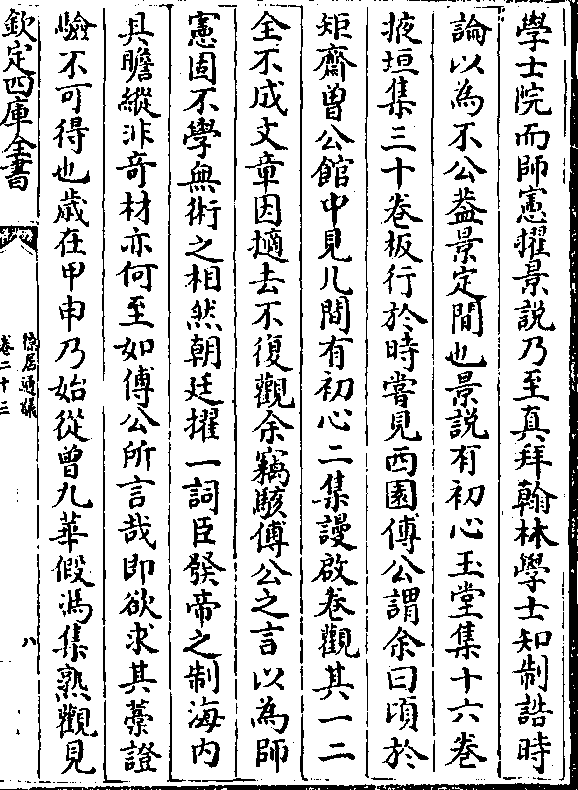 學士院而師憲擢景説乃至真拜翰林學士知制誥時
論以為不公葢景定間也景説有初心玉堂集十六卷
掖垣集三十卷板行於時嘗見西園傅公謂余曰頃於
矩齋曾公館中見几間有初心二集謾啟卷觀其一二
全不成文章因擿去不復觀余竊駭傅公之言以為師
憲固不學無術之相然朝廷擢一詞臣發帝之制海内
具瞻縱非奇材亦何至如傅公所言哉即欲求其藁證
驗不可得也歳在甲申乃始從曾九華假馮集熟觀見
欽定四庫全書
隱居通議
卷二十三
八